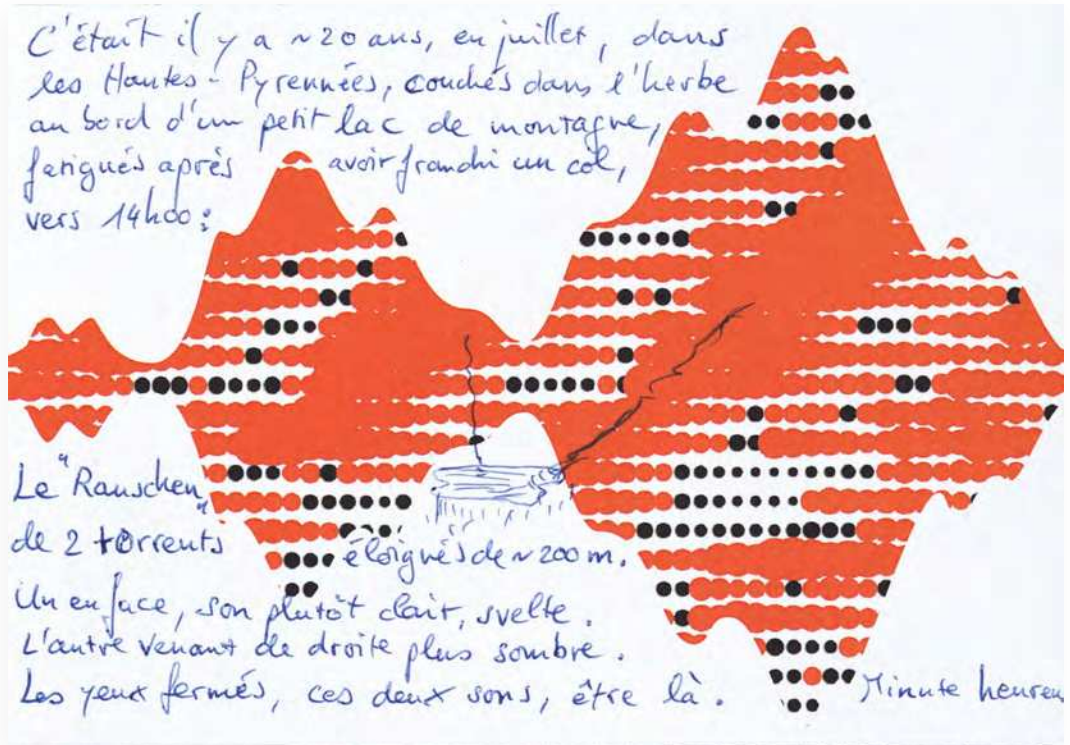 C'était il y a ~20 ans, en juillet, dans
les Hautes-Pyrennées, couchés dans l'herbe
au bord d'un petit lac de montagne,
fatigués après avoir franchi un col,
vers 14h00 :
Le "Rauschen"
de 2 torrents éloignés de ~200 m.
Un en face, son plutôt clair, svelte.
L'autre venant de droite plus sombre.
Les yeux fermés, ces deux sons, être là. Minute heureu